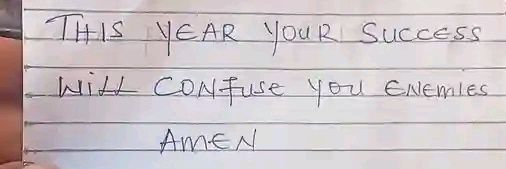 THIS YEAR YOUR SUCCESS
WILL CONFUSE YOU ENEMIES
AMEN